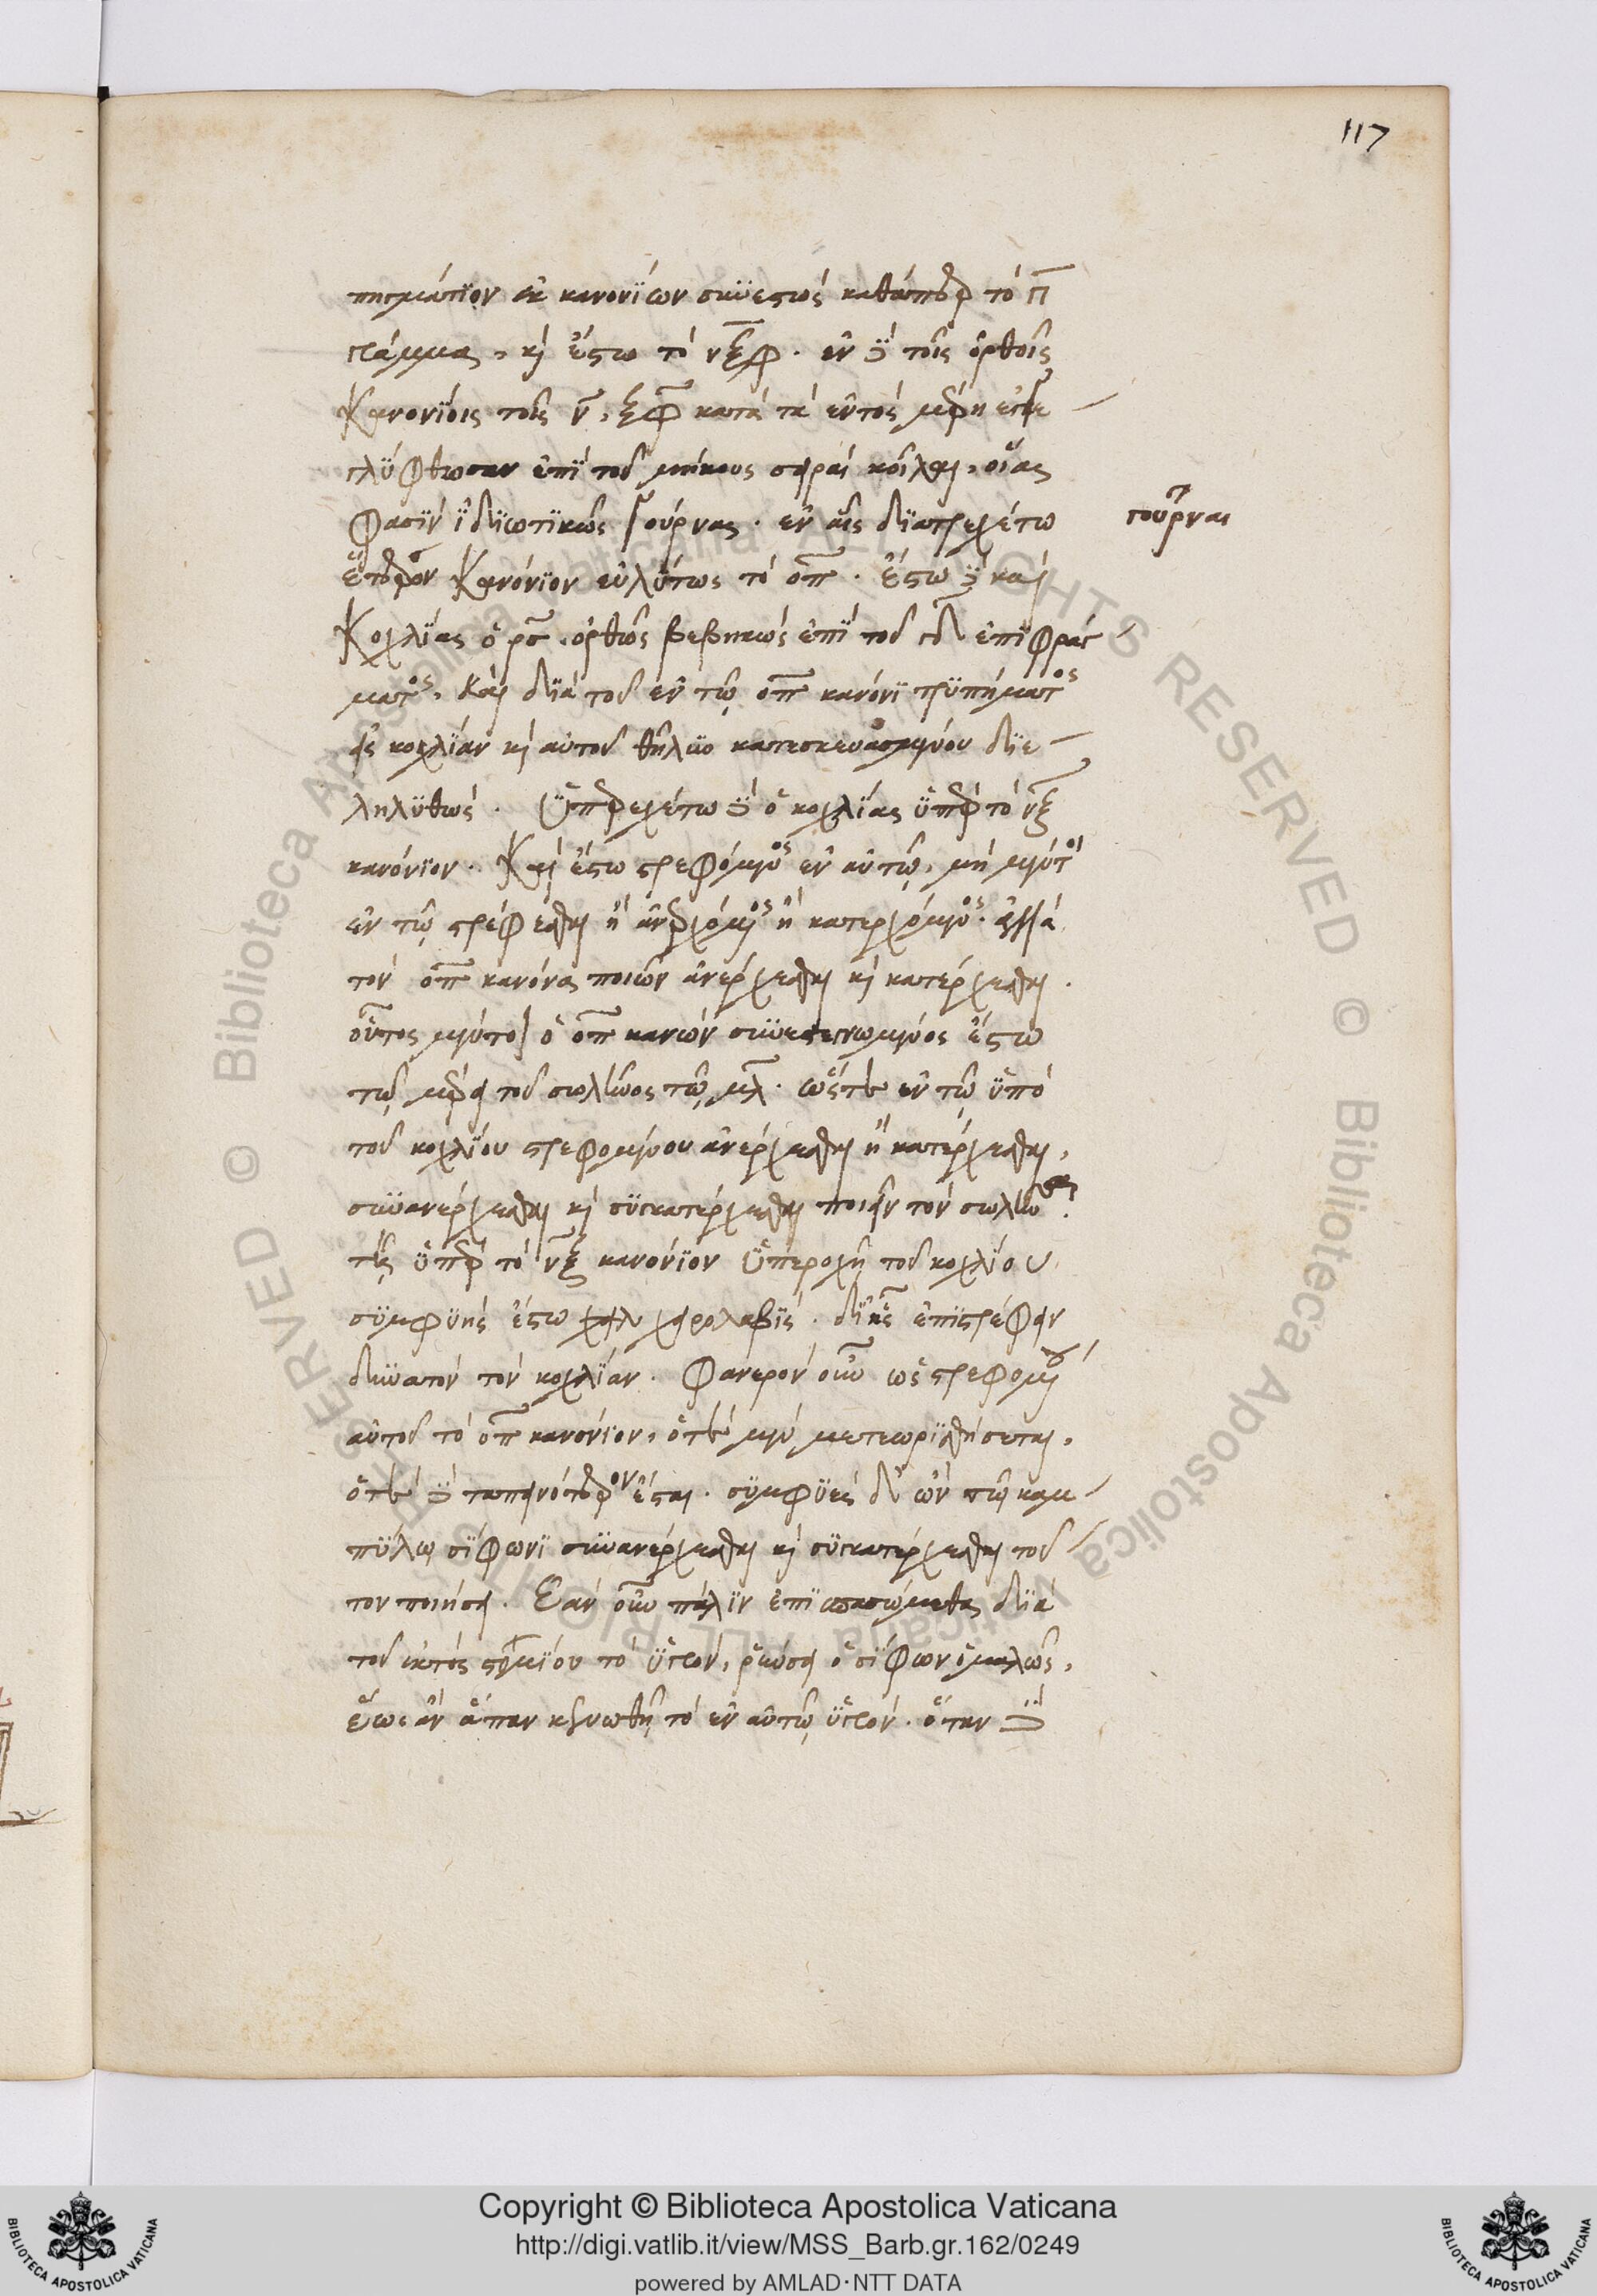 117
πησμάτϊον ἐκ κανονΐων συνεστὼς καθάπερ τὸ π
γράμμα, κὴ ἔστω τὸ νξορ. ἐν δὲ τοῖς ὀρθοῖς
κανονΐοις τοῖς ν, ξρ κατὰ τὰ ἐντὸς μέρη ἐκγε
γλύφθωσαν ἐπῒ τοῦ μήκους σειραὶ κοῖλαι, οἵας
φασῒν ἰδϊωτϊκῶς γούρνας. ἐν αἷς δϊατρεχέτω
γοῦρναι
ἕτερον κανόνϊον εὐλύτως τὸ οπ. ἔστω δὲ καὶ
κοχλΐας ὁ ρσ. ὀρθῶς βεβηκὼς ἐπῒ τοῦ γδ ἐπϊφράγ
ματος, καὶ δϊὰ τοῦ ἐν τῷ οπ κανόνϊ τρϋπήματος
εἰς κοχλΐαν κὴ αὐτοῦ θῆλϋν κατεσκευασμένου δϊε
ληλϋθώς. ὑπερεχέτω δὲ ὁ κοχλΐας ὑπὲρ τὸ νξ
κανόνϊον. Καὶ ἔστω στρεφόμενος ἐν αὐτῷ, μὴ μέντοι
ἐν τῷ στρέφεσθαι ἢ ἀνερχόμενος ἢ κατερχόμενος. ἀλλὰ
τὸν οπ κανόνα ποιῶν ἀνέρχεσθαι κὴ κατέρχεσθαι.
οὗτος μέντοι ὁ οπ κανὼν συνεστεγνωμένος ἔστω
τῷ μέρει τοῦ σωλῆνος τῷ μλ. ὥστε ἐν τῷ ὑπὸ
τοῦ κοχλΐου στρεφομένου ἀνέρχεσθαι ἢ κατέρχεσθαι,
συνανέρχεσθαι κὴ συγκατέρχεσθαι ποιεῖν τὸν σωλῆνα.
τῆς ὑπὲρ τὸ νξ κανονΐον ὑπεροχῆ τοῦ κοχλΐου
σϋμφϋὴς ἔστω χειρολαβΐς. δϊ' ἧς ἐπϊστρέφειν
δυνατὸν τὸν κοχλΐαν. Φανερὸν οὖν ὡς στρεφομένου
αὐτοῦ τὸ οπ κανόνϊον, ὁτὲ μὲν μετεωρϊσθήσεται,
ὁτὲ δὲ ταπεινότερον ἔσται. σϋμφϋὲς δ' ὢν τῷ καμ
πΰλῳ σΐφωνϊ συνανέρχεσθαι κὴ συγκατέρχεσθαι τοῦ
τον ποιήσει. Ἐὰν οὖν πάλϊν ἐπϊσπασώμεθα δϊὰ
τοῦ ἐκτὸς στομΐου τὸ ὑγρόν, ῥεύσει ὁ σΐφων ὁμαλῶς,
ἕως ἂν ἅπαν κενωθῇ τὸ ἐν αὐτῷ ὑγρόν. ὅταν δὲ
Copyright © Biblioteca Apostolica Vaticana
http://digi.vatlib.it/view/MSS_Barb.gr.162/0249
powered by AMLAD·NTT DATA